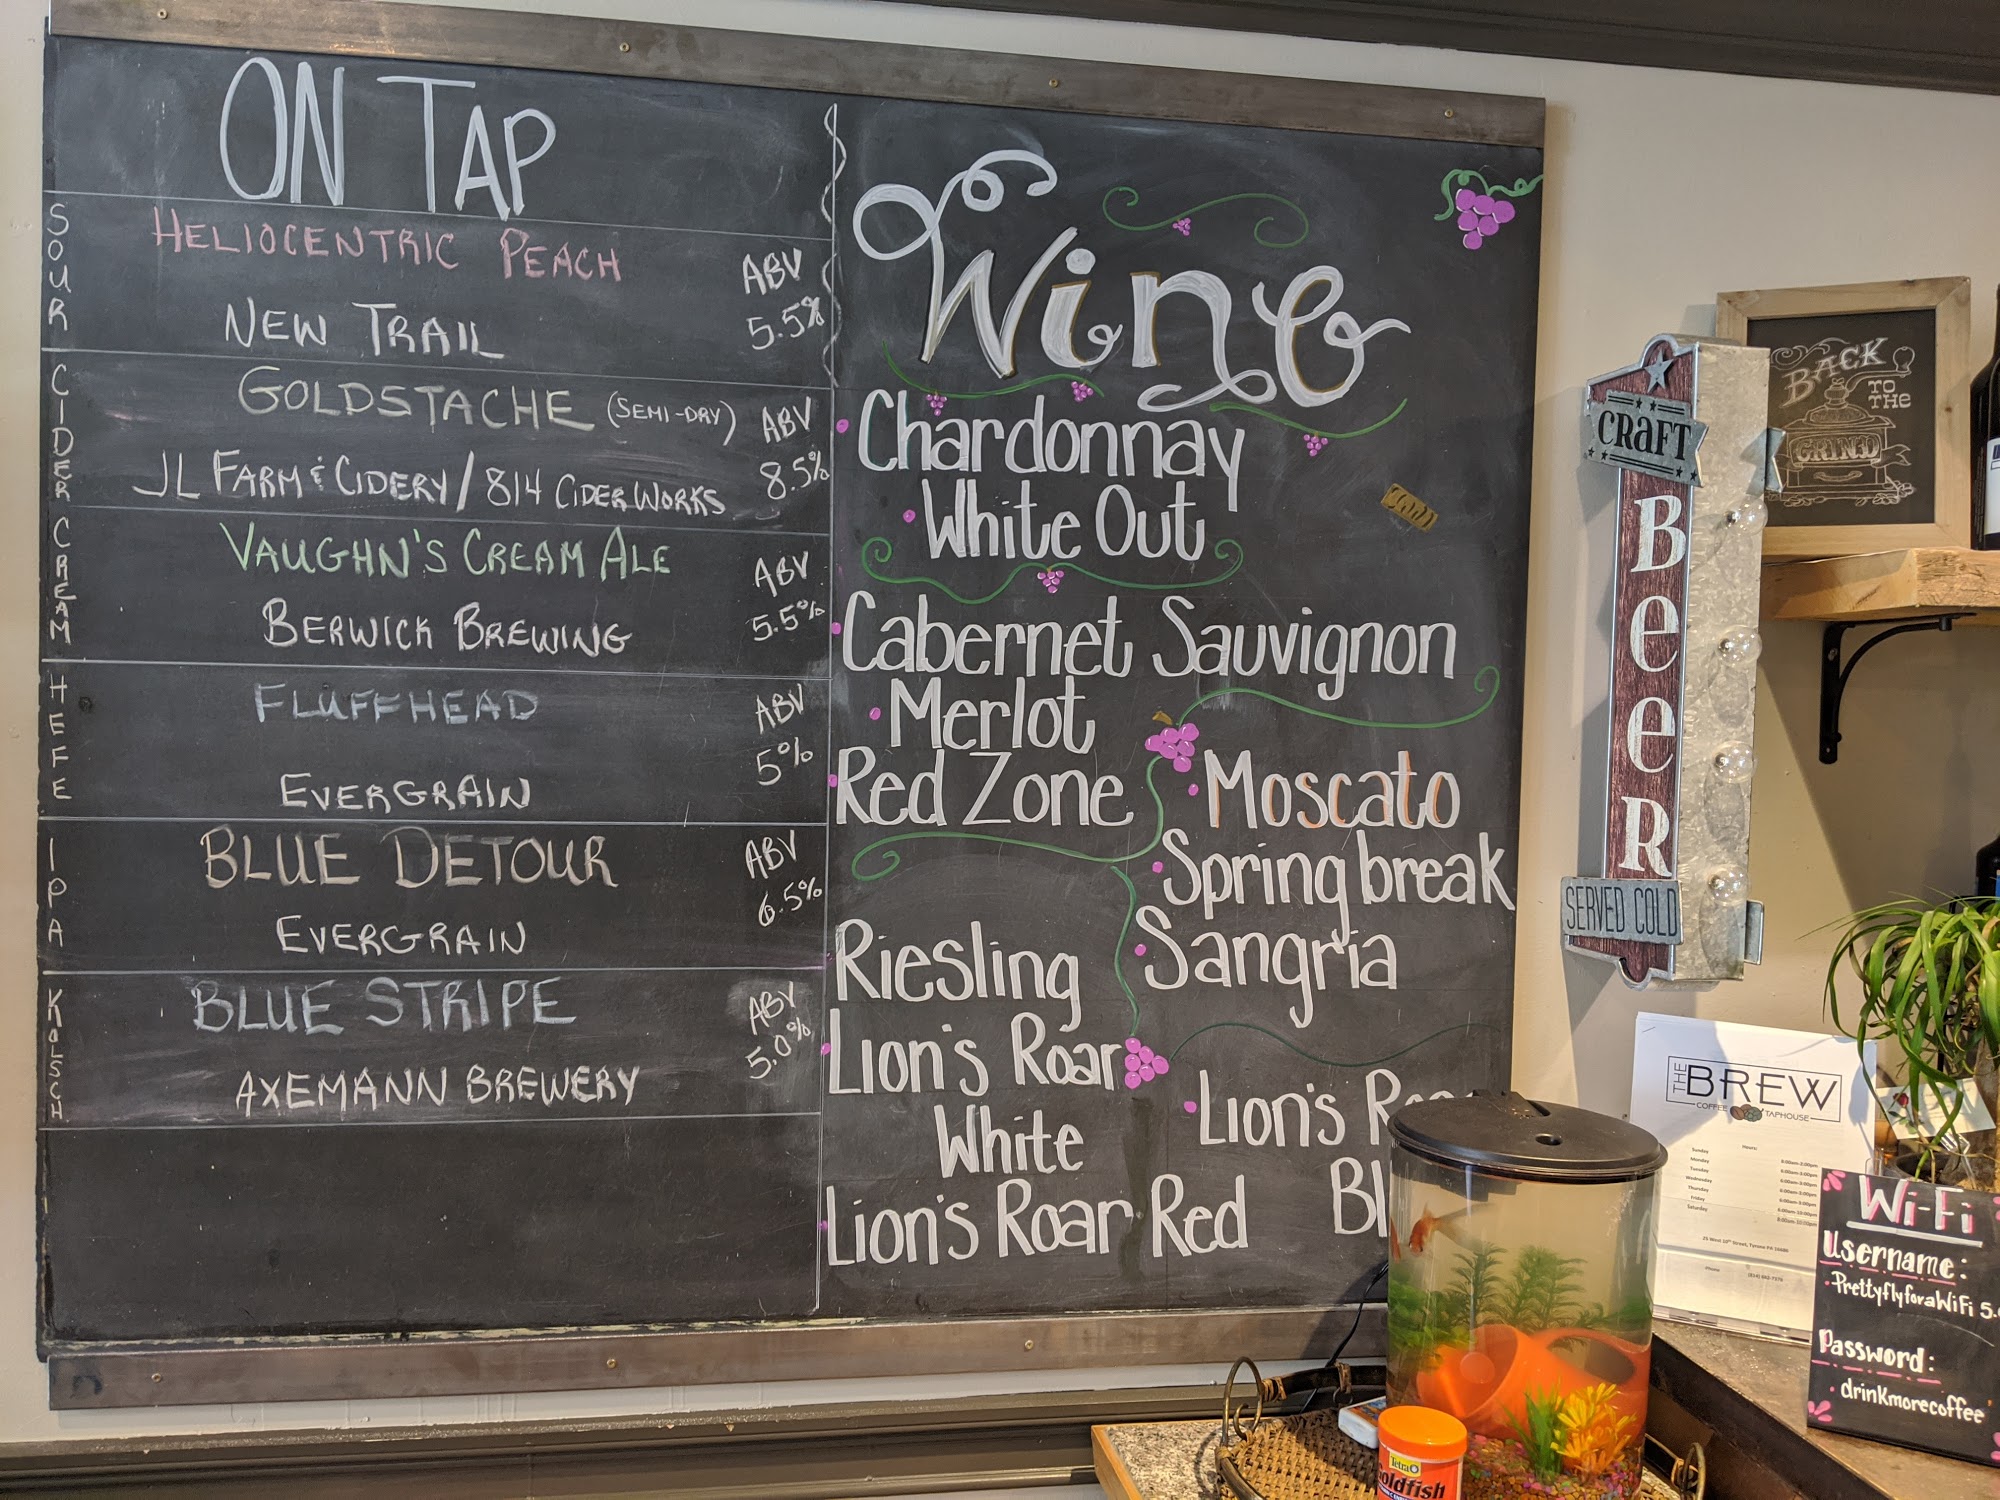 ON TAP
SOUR
HELIOCENTRIC PEACH
ABV
NEW TRAIL
5.5%
CIDER
GOLDSTACHE (SEMI-DRY)
ABV
JL FARM & CIDERY / 814 CIDERWORKS
8.5%
CREAM
VAUGHN'S CREAM ALE
ABV
BERWICK BREWING
5.5%
HEFE
FLUFFHEAD
ABV
EVERGRAIN
5%
IPA
BLUE DETOUR
ABV
EVERGRAIN
6.5%
KOLSCH
BLUE STRIPE
ABV
AXEMANN BREWERY
5.0%
Wine
Chardonnay
White Out
Cabernet Sauvignon
Merlot
Red Zone
Moscato
Spring break
Sangria
Riesling
Lion's Roar
White
Lion's Roar Red
Lion's
Bl
CRAFT
BEER
SERVED COLD
BACK
TO THE
GRIND
THE BREW
COFFEE TAPHOUSE
Hours:
Sunday
Monday
Tuesday
Wednesday
Thursday
Friday
Saturday
Phone
Wi-Fi
Username:
PrettyflyforaWiFi 5.
Password:
drinkmorecoffee
Tetra
Goldfish